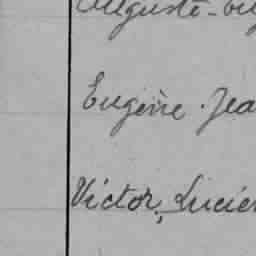 Auguste - Eug
Eugène . Jea
Victor, Lucie